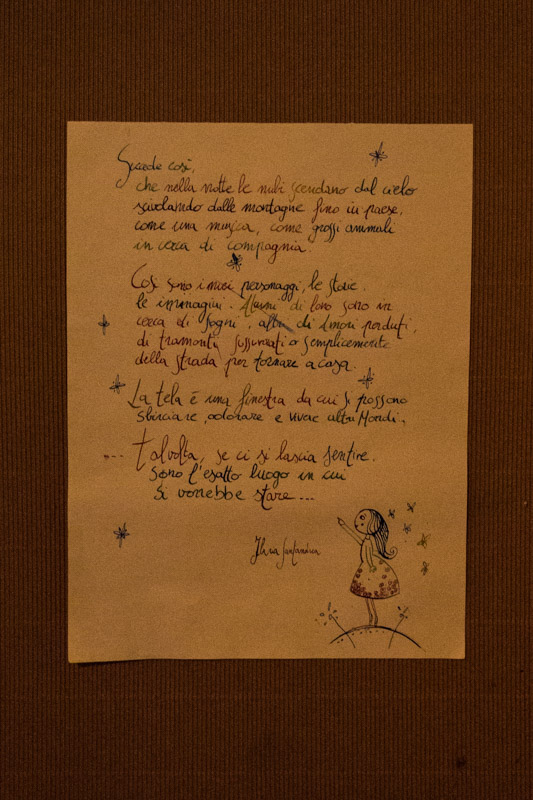 Succede così,
che nella notte le nubi scendano dal cielo
scivolando dalle montagne fino in paese,
come una musica, come grossi animali
in cerca di compagnia.
Così sono i miei personaggi, le storie.
le immagini. Alcuni di loro sono in
cerca di sogni, altri di amori perduti,
di tramonti sussurrati o semplicemente
della strada per tornare a casa.
La tela è una finestra da cui si possono
sbirciare, odorare e vivere altri Mondi.
... Talvolta, se ci si lascia sentire.
Sono l'esatto luogo in cui
si vorrebbe stare...